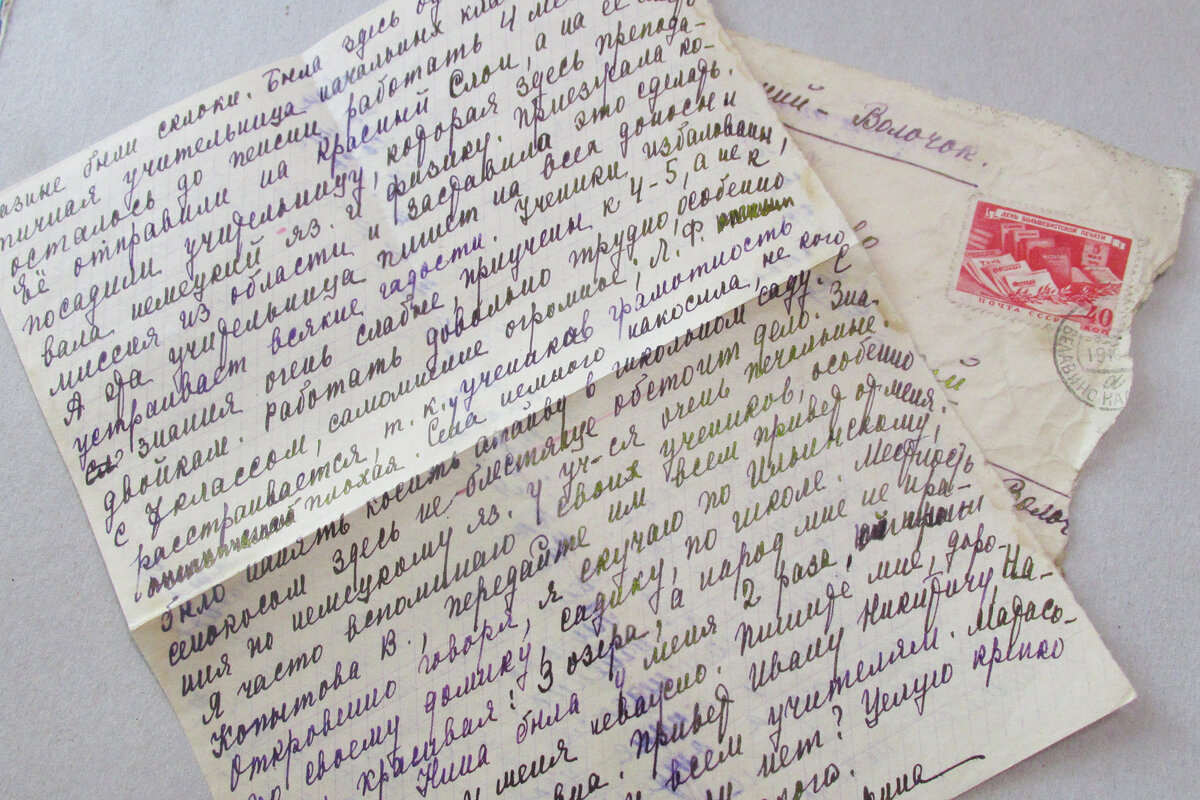 были склоки. Была здесь
учительница начальных
осталось до пенсии работать 4
Её отправили на красный Слои, а на её
посадили учительницу, которая здесь препода-
вала немецкий яз. и физику. Приезжала ко-
миссия из области и заставила это сделать.
А эта учительница пишет на всех доносы и
устраивает всякие гадости. Ученики избалованы
знания очень слабые, приучены к 4-5, а не к
двойкам. Работать довольно трудно, особенно
с 7 классом, самомнение огромное; Л. Ф.
расстраивается, т. к. у учеников грамотность
плохая. Сена немного накосила, не кого
было нанять косить отаву в школьном саду. С
сенокосом здесь не блестяще обстоит дело. Зна-
ния по немецкому яз. у уч-ся очень печальные.
Я часто вспоминаю своих учеников, особенно
Копытова В., передайте им всем привет от меня.
Откровенно говоря, я скучаю по Ильинскому,
по своему домику, садику, по школе. Местность
красивая: 3 озера, а народ мне не нра-
Нина была у меня 2 раза,
у меня невкусно. Пишите мне, доро-
Привет Ивану Никитичу, На-
и всем учителям.
нет? Целую крепко
Волочок.
ДЕНЬ БОЛЬШЕВИСТСКОЙ ПЕЧАТИ
ПОЧТА СССР
40
КОП